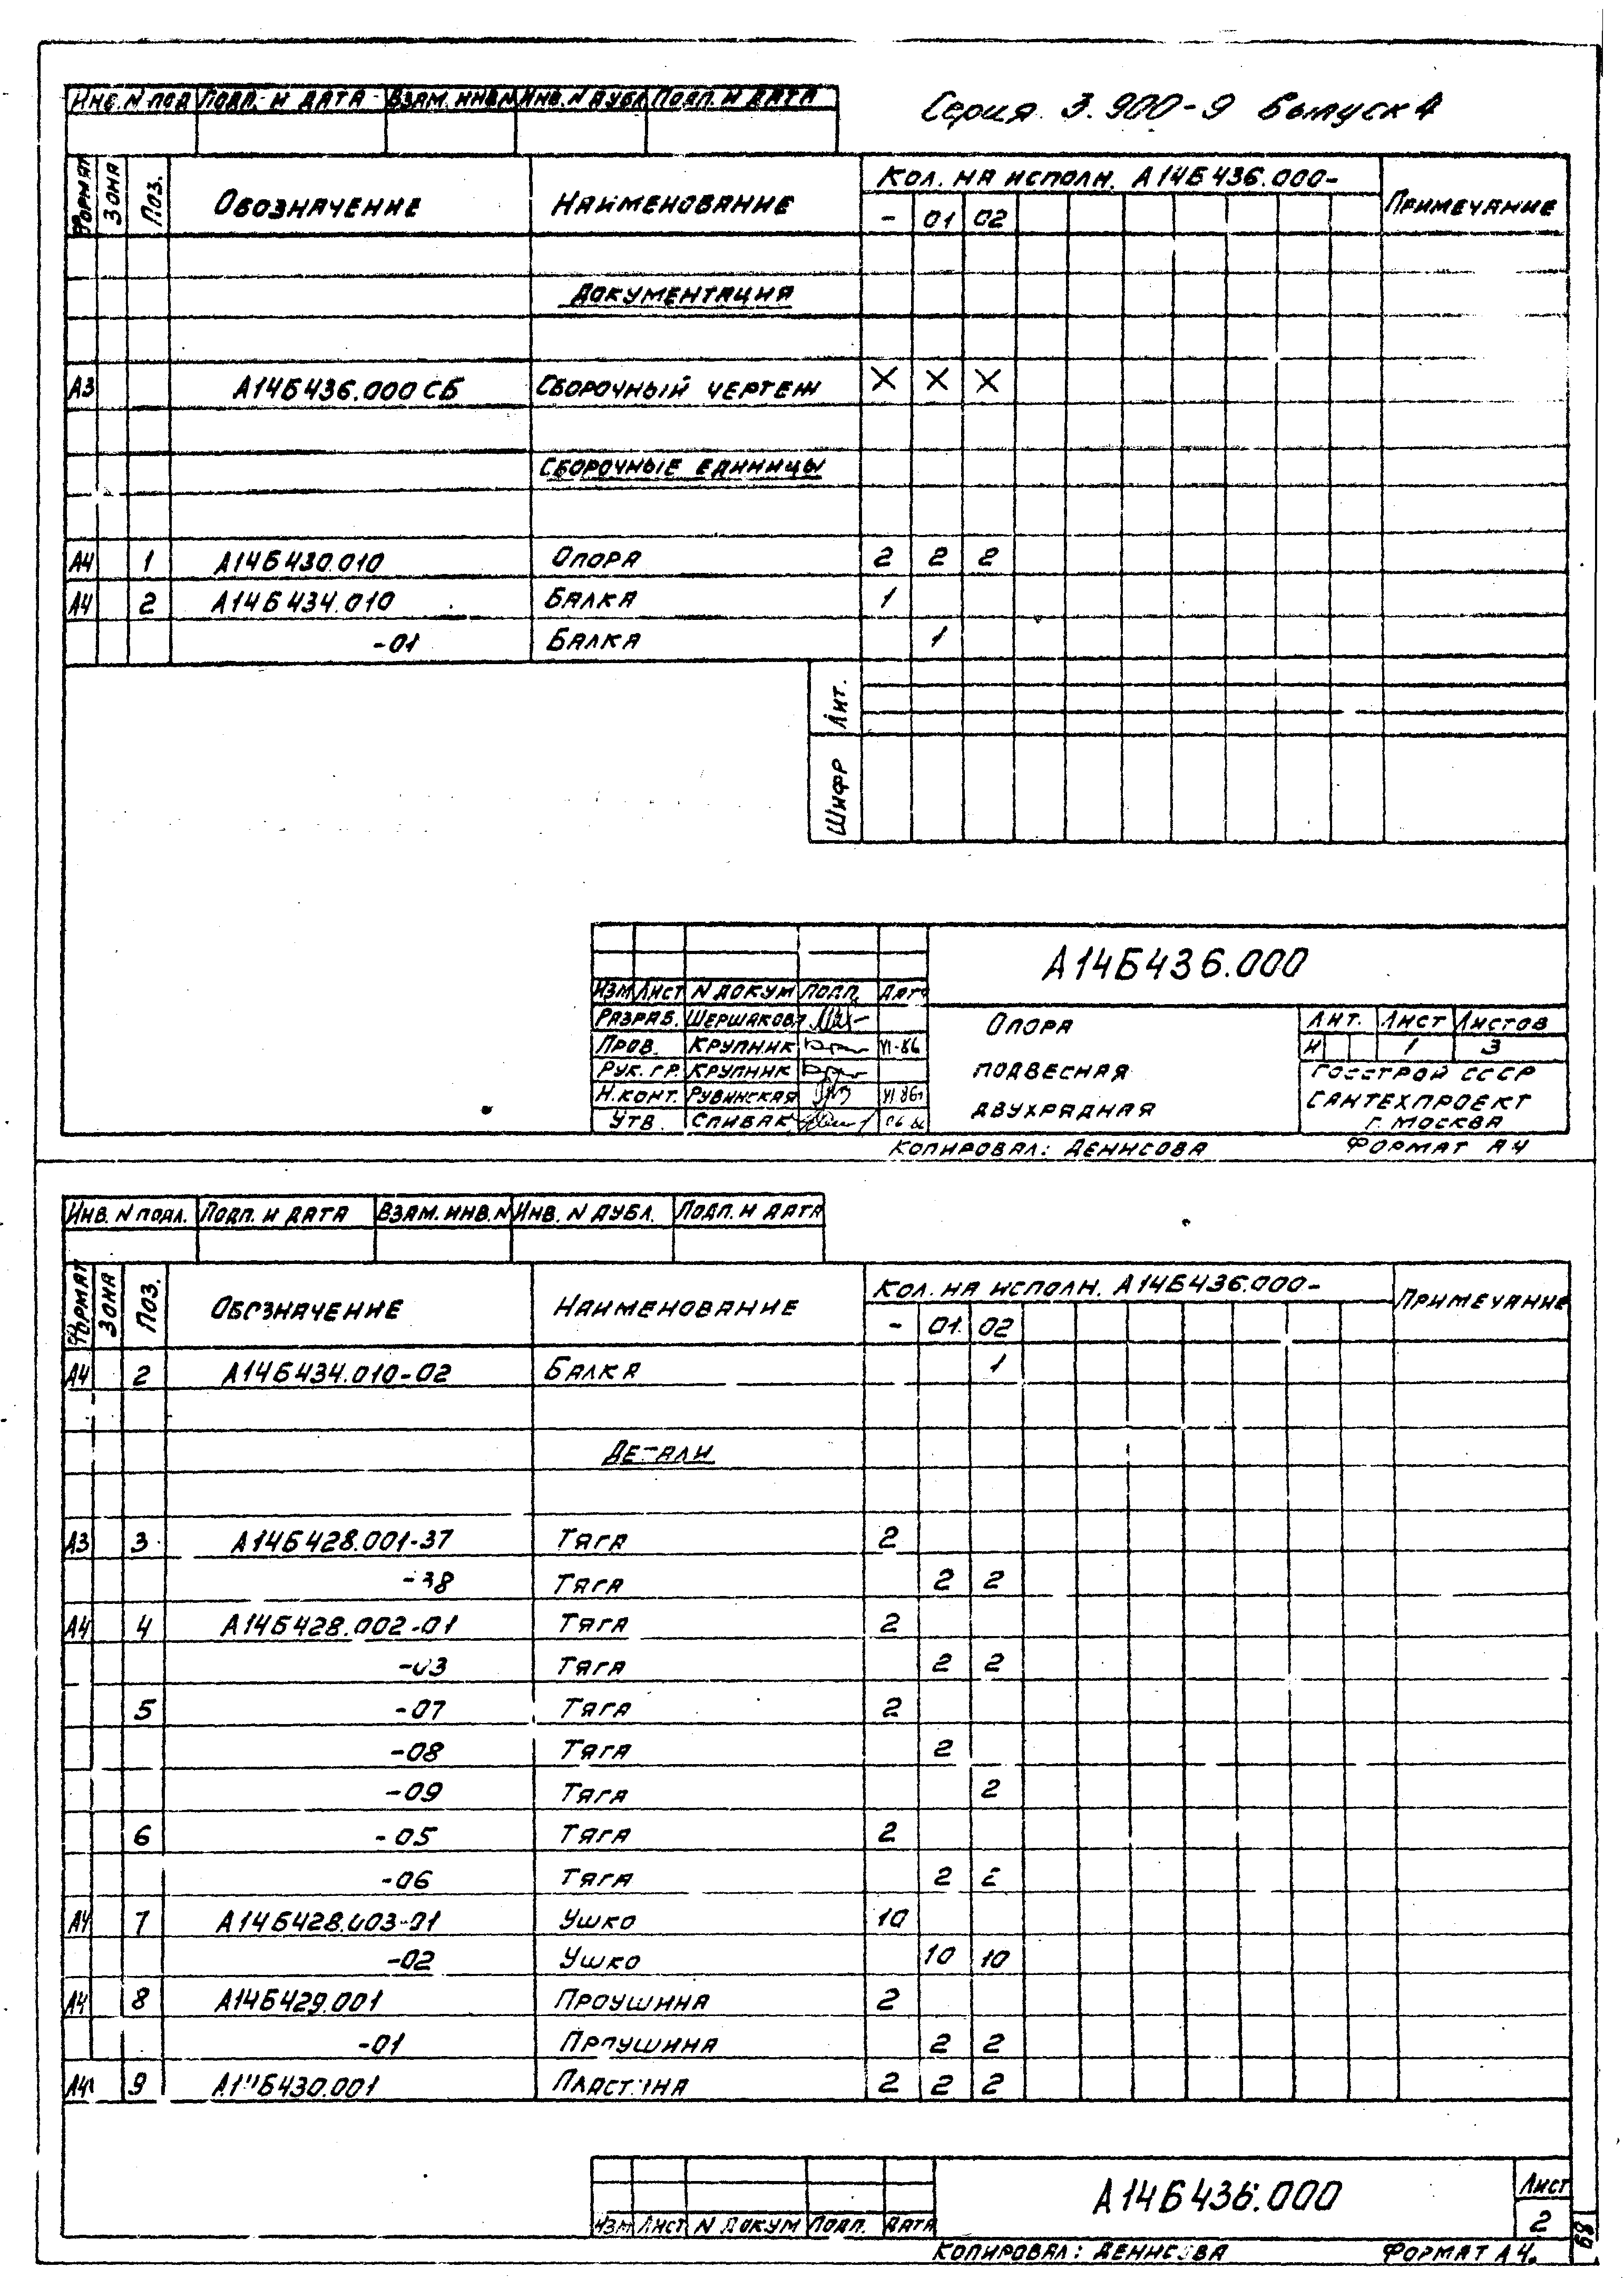 Серия 3.900-9 Выпуск 4
ИНВ. N ПОД ПОДП. И ДАТА ВЗАМ. ИНВ N ИНВ. N ДУБЛ ПОДП. И ДАТА
ФОРМАТ ЗОНА ПОЗ. ОБОЗНАЧЕНИЕ НАИМЕНОВАНИЕ КОЛ. НА ИСПОЛН. А14Б436.000- ПРИМЕЧАНИЕ
- 01 02
ДОКУМЕНТАЦИЯ
А3 А14Б436.000 СБ СБОРОЧНЫЙ ЧЕРТЕЖ X X X
СБОРОЧНЫЕ ЕДИНИЦЫ
А4 1 А14Б430.010 ОПОРА 2 2 2
А4 2 А14Б434.010 БАЛКА 1
-01 БАЛКА 1
ЛИТ.
ШИФР
А14Б436.000
ИЗМ ЛИСТ N ДОКУМ ПОДП. ДАТА
РАЗРАБ. ШЕРШАКОВА
ПРОВ. КРУПНИК VI-86
РУК. ГР. КРУПНИК
Н.КОНТ. РУВИНСКАЯ VI 86г
УТВ. СПИВАК 06 86
ОПОРА
ПОДВЕСНАЯ
ДВУХРЯДНАЯ
ЛИТ. ЛИСТ ЛИСТОВ
И 1 3
ГОССТРОЙ СССР
САНТЕХПРОЕКТ
Г. МОСКВА
КОПИРОВАЛ: ДЕНИСОВА ФОРМАТ А4
ИНВ. N ПОДЛ. ПОДП. И ДАТА ВЗАМ. ИНВ. N ИНВ. N ДУБЛ. ПОДП. И ДАТА
ФОРМАТ ЗОНА ПОЗ. ОБОЗНАЧЕНИЕ НАИМЕНОВАНИЕ КОЛ. НА ИСПОЛН. А14Б436.000- ПРИМЕЧАНИЕ
- 01 02
А4 2 А14Б434.010-02 БАЛКА 1
ДЕТАЛИ
А3 3 А14Б428.001-37 ТЯГА 2
-38 ТЯГА 2 2
А4 4 А14Б428.002-01 ТЯГА 2
-03 ТЯГА 2 2
5 -07 ТЯГА 2
-08 ТЯГА 2
-09 ТЯГА 2
6 -05 ТЯГА 2
-06 ТЯГА 2 2
А4 7 А14Б428.003-01 УШКО 10
-02 УШКО 10 10
А4 8 А14Б429.001 ПРОУШИНА 2
-01 ПРОУШИНА 2 2
А4 9 А14Б430.001 ПЛАСТИНА 2 2 2
А14Б436.000
ЛИСТ
2
ИЗМ ЛИСТ N ДОКУМ ПОДП. ДАТА
КОПИРОВАЛ: ДЕНИСОВА ФОРМАТ А4.
89